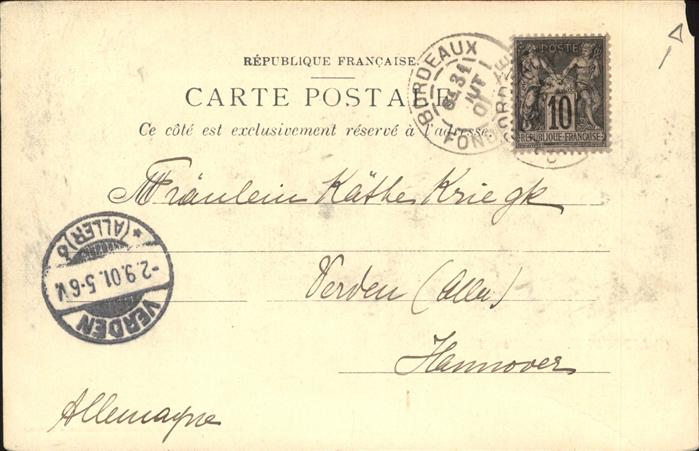 RÉPUBLIQUE FRANÇAISE.
CARTE POSTALE
Ce côté est exclusivement réservé à l'adresse.
BORDEAUX
31
01
POSTE
10
RÉPUBLIQUE FRANÇAISE
Fräulein Käthe Kriegk
Verden (Aller)
Hannover
Allemagne
VERDEN
-2.9.01.5-6V.
* (ALLER) ö